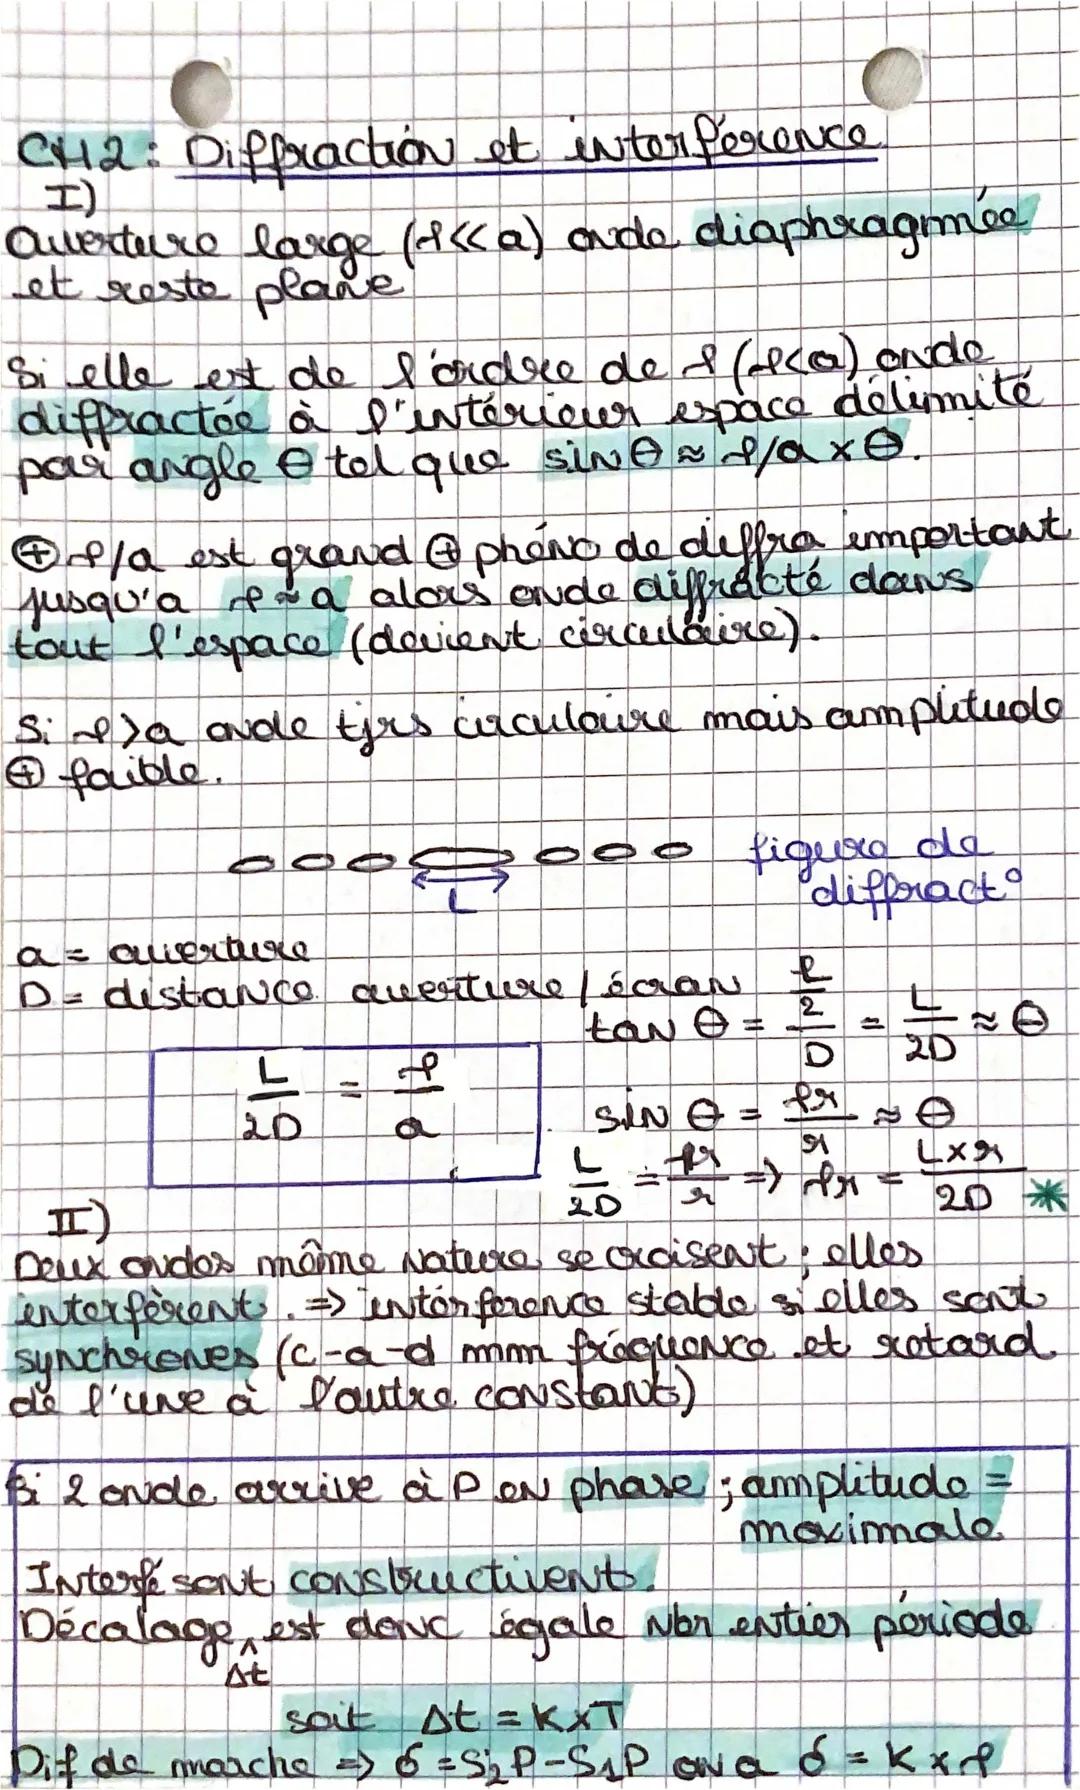 CH2: Diffraction et interférence
I)
Ouverture large (λ<<a) onde diaphragmée
et reste plane
Si elle est de l'ordre de λ (λ<a) onde
diffractée à l'intérieur espace délimité
par angle θ tel que sinθ ≈ λ/a x θ.
⊕ λ/a est grand ⊕ phéno de diffra important
jusqu'a λ≈a alors onde diffracté dans
tout l'espace (devient circulaire).
Si λ>a onde tjrs circulaire mais amplitude
⊕ faible.
figure de
diffract°
L
a = ouverture
D = distance ouverture/écran
tan θ = (L/2)/D = L/2D ≈ θ
L/2D = λ/a
sin θ = λr/r ≈ θ
L/2D = λr/r => λr = Lxr/2D *
II)
Deux ondes même nature se croisent ; elles
interfèrent. => interférence stable si elles sont
synchrones (c-a-d mm fréquence et retard
de l'une à l'autre constant)
Si 2 onde arrive à P en phase ; amplitude =
maximale
Interfé sont constructivent.
Décalage est donc égale nbr entier période
^
Δt
soit Δt = KxT
Dif de marche => δ = S₂P-S₁P on a δ = K x λ